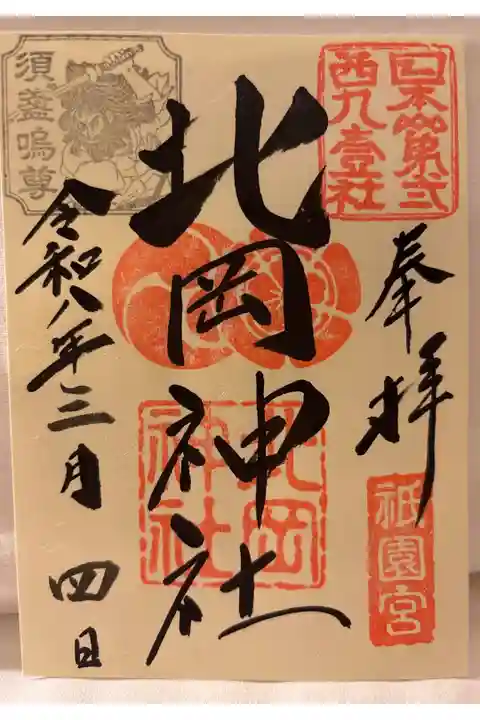 日本第弐
西九壹社
奉拝
祇園宮
北岡神社
北岡
神社
須盞嗚尊
令和八年三月四日